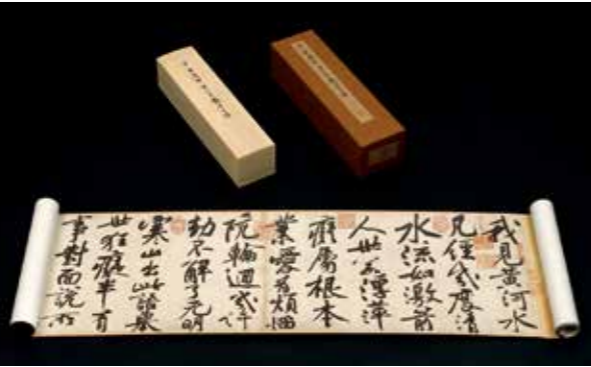 我見黃河水
凡經幾度清
水流如激箭
人世若浮萍
癡屬根本
業愛為煩惱
阬輪迴幾許
劫不解了无明
寒山出此語舉
世狂癡半有
事對面說所